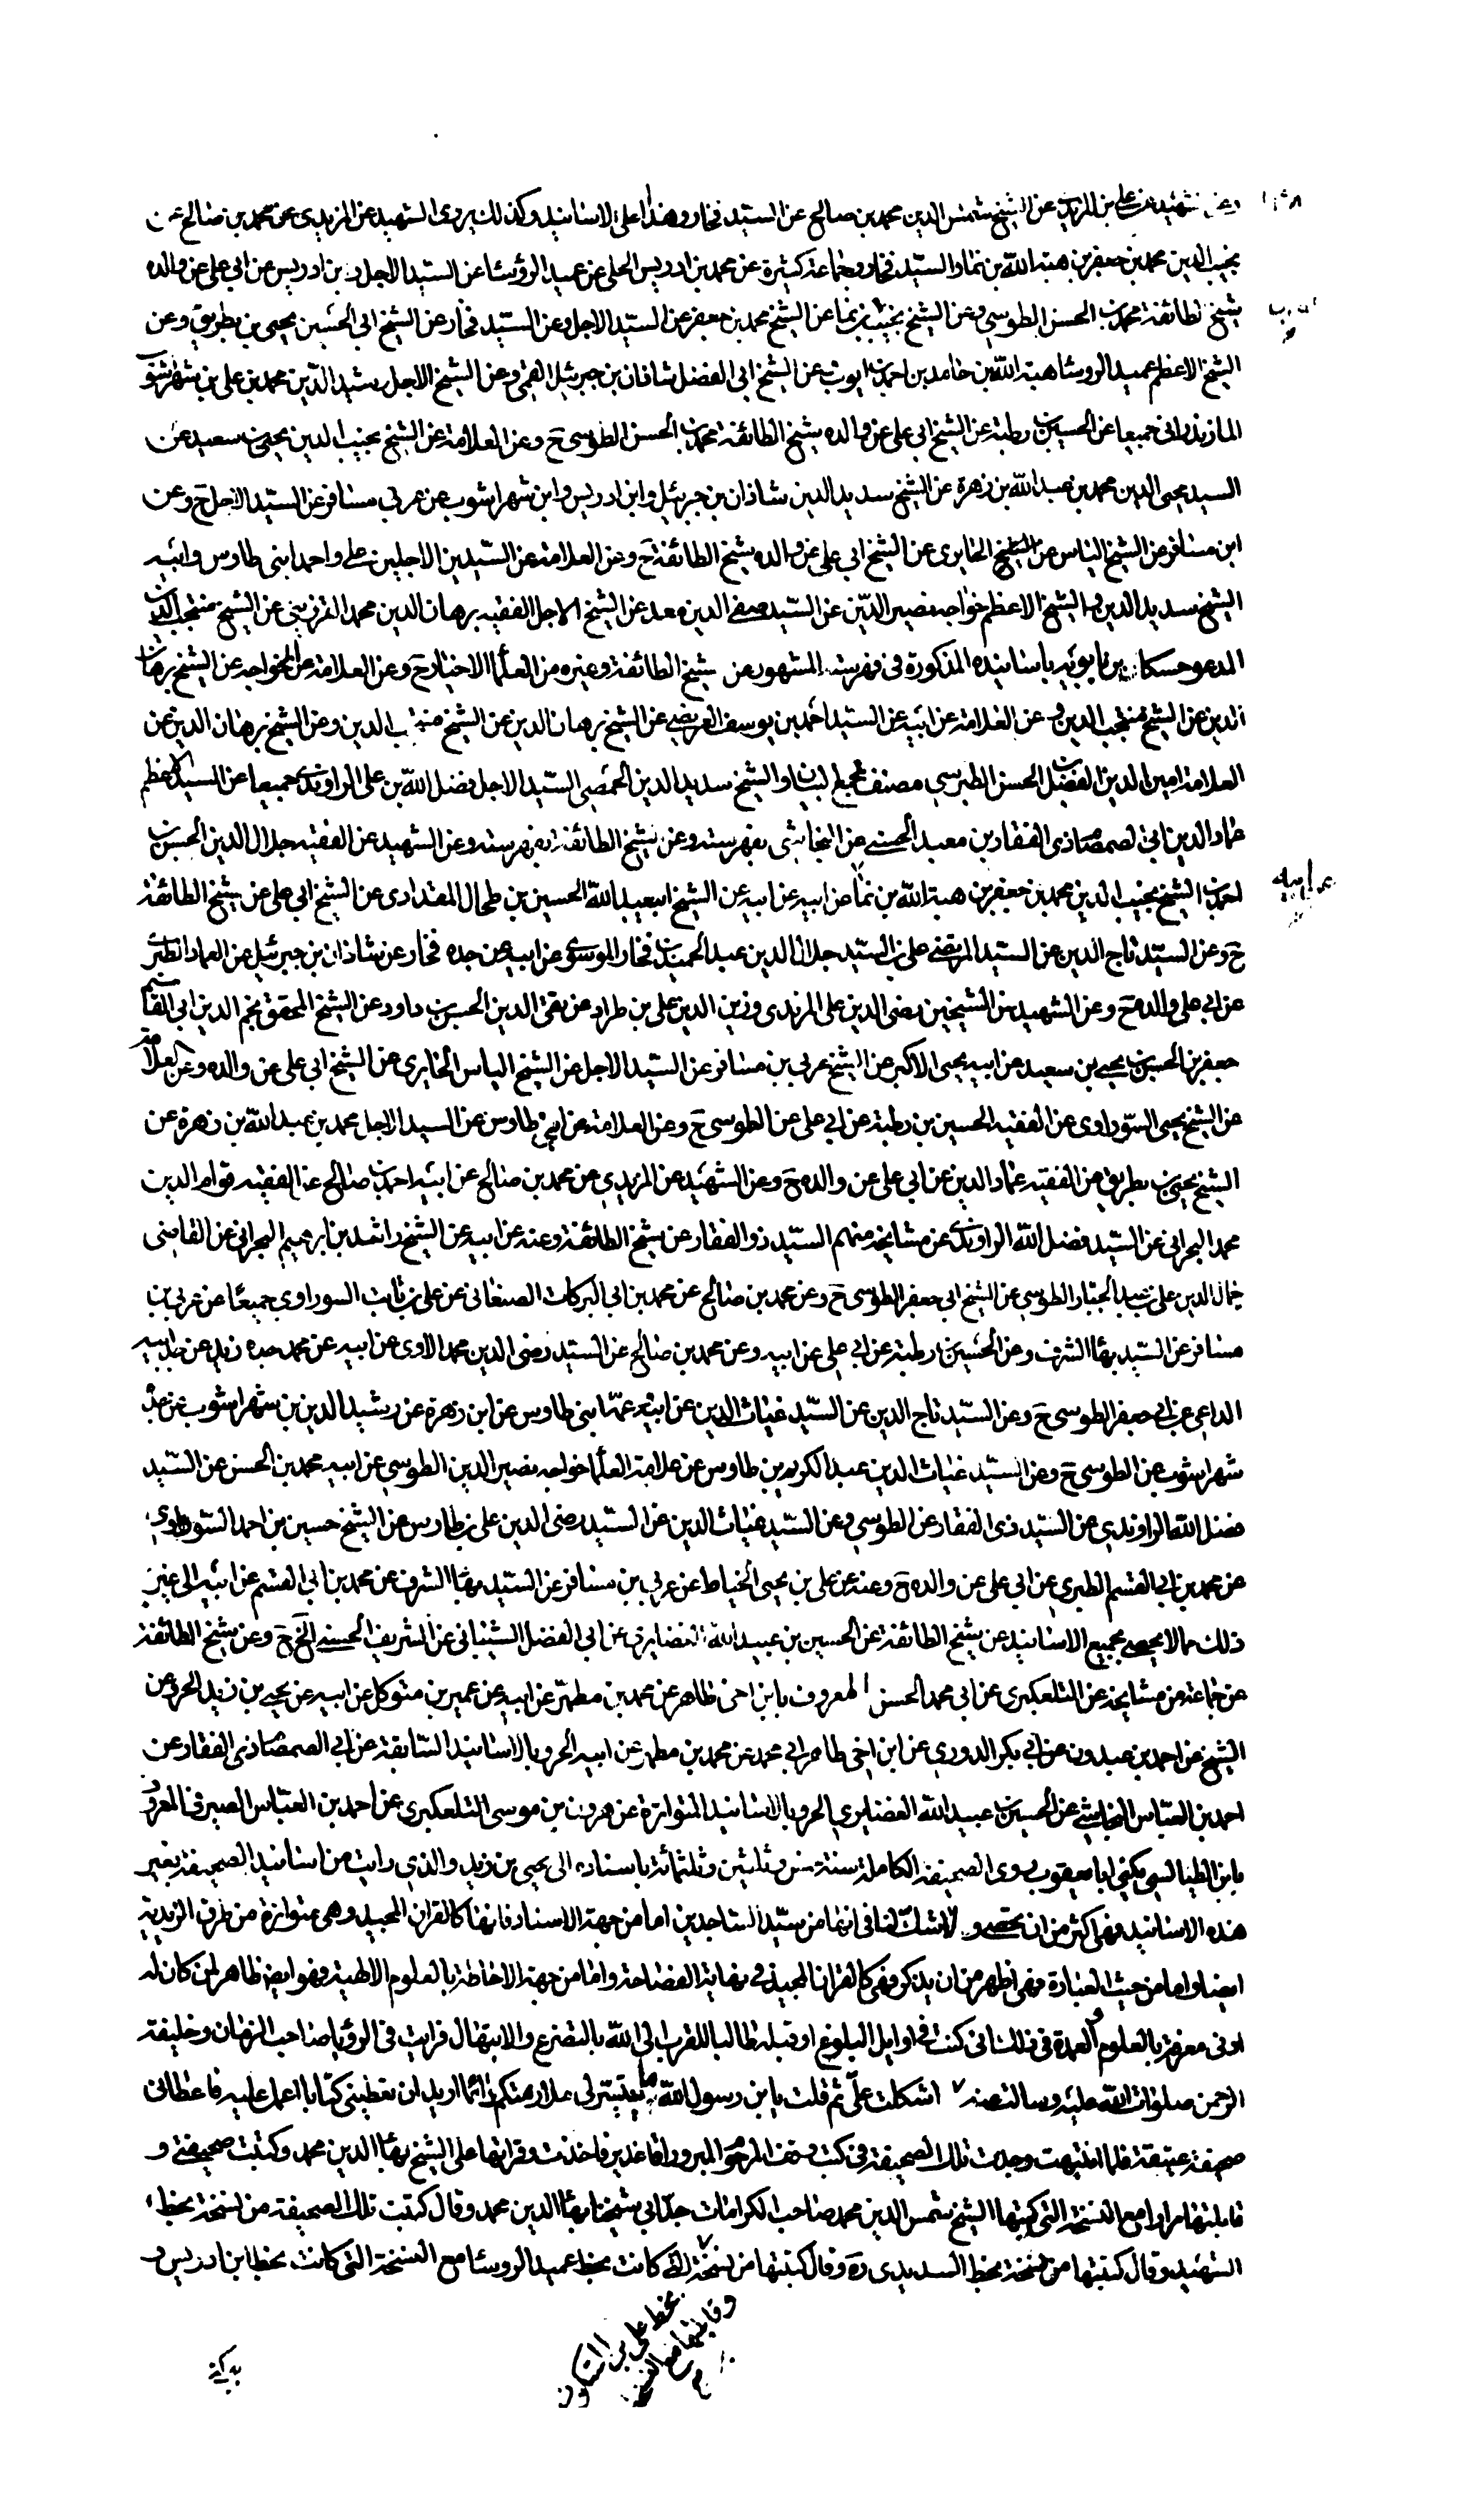 وعن الشهيد عن علي بن المزيدي عن الشيخ شمس الدين محمد بن صالح عن السيد فخار وهذا اعلى الاسانيد وكذلك يروي الشهيد عن المزيدي عن محمد بن صالح عن
نجيب الدين محمد بن جعفر بن هبة الله بن نما والسيد فخار وجماعة كثيرة عن محمد بن ادريس الحلي عن عميد الرؤسا عن السيد الاجل و بن ادريس عن ابي علي عن والده
شيخ الطائفة محمد بن الحسن الطوسي وعن الشيخ نجيب بن نما عن الشيخ محمد بن جعفر عن السيد الاجل وعن السيد فخار عن الشيخ ابي الحسين يحيى بن بطريق وعن
الشيخ الاعظم عميد الروسا هبة الله بن حامد بن احمد بن ايوب عن الشيخ ابي الفضل شاذان بن جبرئيل القمي وعن الشيخ الاجل رشيد الدين محمد بن علي بن شهراشوب
المازندراني جميعا عن الحسين بن رطبة عن الشيخ ابي علي عن والده شيخ الطائفة محمد بن الحسن الطوسي ح وعن العلامة عن الشيخ نجيب الدين يحيى بن سعيد عن
السيد محيي الدين محمد بن عبد الله بن زهرة عن الشيخ سديد الدين شاذان بن جبرئيل وابن ادريس وابن شهراشوب عن عربي مسافر عن السيد الاجل ح وعن
ابن مسافر عن الشيخ الياس عن الشيخ الحايري عن الشيخ ابي علي عن والده شيخ الطائفة ح وعن العلامة عن السيدين الاجلين علي واحمد ابني طاوس وابيه
الشيخ سديد الدين والشيخ الاعظم خواجه نصير الدين عن السيد صفي الدين معد عن الشيخ الاجل الفقيه برهان الدين محمد القزويني عن الشيخ منتجب الدين
المدعو حسكا بن بابويه باسانيده المذكورة في فهرسته المشهور عن شيخ الطائفة وغيره من العلما الاخيار ح وعن العلامة عن الخواجه عن الشيخ برهان
الدين عن الشيخ منتجب الدين و عن العلامة عن ابيه عن السيد احمد بن يوسف العريضي عن الشيخ برهان الدين عن الشيخ منتجب الدين وعن الشيخ برهان الدين عن
العلامة امين الدين الفضل بن الحسن الطبرسي مصنف مجمع البيان والشيخ سديد الدين الحمصي السيد الاجل فضل الله بن علي الراوندي جميعا عن السيد الاعظم
عماد الدين ابي الصمصام ذي الفقار بن معبد الحسني عن النجاشي بفهرسته وعن شيخ الطائفة بفهرسته وعن الشهيد عن الفقيه جلال الدين الحسن بن
احمد بن الشيخ نجيب الدين محمد بن جعفر بن هبة الله بن نما عن ابيه عن ابيه عن الشيخ ابيعبد الله الحسين بن طحال المقدادي عن الشيخ ابي علي عن شيخ الطائفة
ح وعن السيد تاج الدين عن السيد المرتضى علي بن السيد جلال الدين عبد الحميد بن فخار الموسوي عن ابيه عن جده فخار عن شاذان بن جبرئيل عن العماد الطبري
عن ابي علي والده ح وعن الشهيد عن الشيخين رضي الدين علي المزيدي وزين الدين علي بن طراد عن تقي الدين الحسن بن داود عن الشيخ المحقق نجم الدين ابي القاسم
جعفر بن الحسن بن يحيى بن سعيد عن ابيه يحيى الاكبر عن الشيخ عربي بن مسافر عن السيد الاجل عن الشيخ الياس الحايري عن الشيخ ابي علي عن والده وعن العلامة
عن الشيخ يحيى السوراوي عن الفقيه الحسين بن رطبة عن ابي علي عن الطوسي ح وعن العلامة عن ابني طاوس عن السيد الاجل محمد بن عبد الله بن زهرة عن
الشيخ يحيى بن بطريق عن الفقيه عماد الدين عن ابي علي عن والده ح وعن الشهيد عن المزيدي عن محمد بن صالح عن ابيه احمد بن صالح عن الفقيه قوام الدين
محمد البحراني عن السيد فضل الله الراوندي عن مشايخه منهم السيد ذو الفقار عن شيخ الطائفة وعنه عن ابيه عن الشيخ راشد بن ابرهيم البحراني عن القاضي
جمال الدين علي بن عبد الجبار الطوسي عن الشيخ ابي جعفر الطوسي ح وعن محمد بن صالح عن محمد بن ابي البركات الصنعاني عن علي بن ثابت السوراوي جميعا عن عربي بن
مسافر عن السيد بهاء الشرف وعن الحسين بن رطبة عن ابي علي عن ابيه وعن محمد بن صالح عن السيد رضي الدين محمد الاوي عن ابيه عن محمد جده زيد عن جد ابيه
الداعي عن ابي جعفر الطوسي ح وعن السيد تاج الدين عن السيد غياث الدين عن ابيه عمه ابني طاوس عن ابن زهرة عن رشيد الدين بن شهراشوب عن جده
شهراشوب عن الطوسي ح وعن السيد غياث الدين عبد الكريم بن طاوس عن علامة العلما خواجه نصير الدين الطوسي عن ابيه محمد بن الحسن عن السيد
فضل الله الراوندي عن السيد ذي الفقار عن الطوسي وعن السيد غياث الدين عن السيد رضي الدين علي بن طاوس عن الشيخ حسين بن احمد السوراوي
عن محمد بن ابي القسم الطبري عن ابي علي عن والده ح وعنه عن علي بن يحيى الخياط عن عربي بن مسافر عن السيد بهاء الشرف عن محمد بن ابي القسم عن ابيه الى غير
ذلك مما لا يحصى بجميع الاسانيد عن شيخ الطائفة عن الحسين بن عبيد الله الغضايري عن ابي الفضل الشيباني عن الشريف الحسني الخ ح وعن شيخ الطائفة
عن جماعة من مشايخه عن التلعكبري عن ابي محمد الحسن المعروف بابن اخي طاهر عن محمد بن مطهر عن ابيه عن عمير بن متوكل عن ابيه عن يحيى بن زيد الخ وعن
الشيخ عن احمد بن عبدون عن ابي بكر الدوري عن ابن اخي طاهر ابي محمد عن محمد بن مطهر عن ابيه الخ وبالاسانيد السابقة عن ابي الصمصام ذي الفقار عن
احمد بن العباس النجاشي عن الحسين بن عبيد الله الغضايري الخ وبالاسانيد المتواترة عن هرون بن موسى التلعكبري عن احمد بن العباس الصيرفي المعروف
بابن الطيالسي يكنى ابا يعقوب روى الصحيفة الكاملة سنة خمس وثلثين وثلثمائة باسناده الى يحيى بن زيد والذي رايت من اسانيد الصحيفة بغير
هذه الاسانيد فهي اكثر من ان يحصى ولا شك لنا في انها من سيد الساجدين اما من جهة الاسناد فانها كالقران المجيد وهي متواترة من طرق الزيدية
ايضا واما من حيث العبارة فهي اظهر من ان يذكر وهي كالقران المجيد في نهاية الفصاحة واما من جهة الاحاطة بالعلوم الالهية فهو ايضا ظاهر لمن كان له
ادنى معرفة بالعلوم والعمدة في ذلك اني كنت في اوايل البلوغ او قبله طالبا للقرب الى الله بالتضرع والابتهال فرايت في الرؤيا صاحب الزمان وخليفة
الرحمن صلوات الله عليه وسالته عن اشكلت علي ثم قلت يا بن رسول الله ما يتيسر لي ملازمتكم دائما اريد ان تعطيني كتابا اعمل عليه فاعطاني
صحيفة عتيقة فلما انتبهت وجدت تلك الصحيفة في كتب وقف المرحوم المبرور اقا غدير فاخذت وقراتها على الشيخ بهاء الدين محمد وكتبت صحيفتي و
قابلتها مرارا مع النسخة التي كتبها الشيخ شمس الدين محمد صاحب الكرامات جد ابي شيخنا بهاء الدين محمد وقال كتبت تلك الصحيفة من نسخة بخط
الشهيد وقال كتبتها من نسخة بخط السديدي ره وقال كتبتها من نسخة التي كانت بخط عميد الروسا مع النسخة التي كانت بخط ابن ادريس و
وقابلتها مع
بخط علي بن السكون